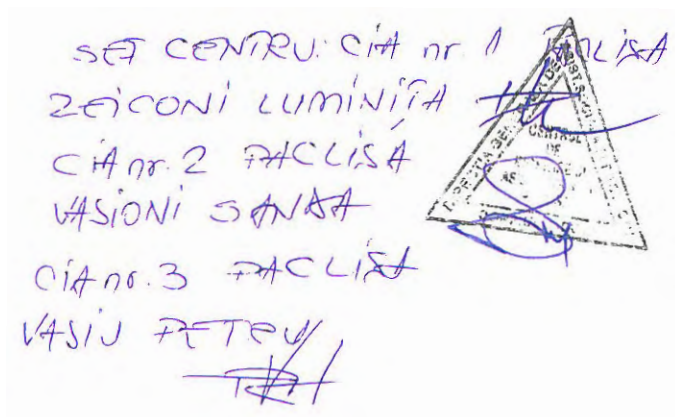 SEF CENTRU: CIA nr. 1 PACLISA
ZEICONI LUMINIȚA
CIA nr. 2 PACLISA
VASIONI SANDA
CIA nr. 3 PACLISA
VASIU PETRU
CENTRUL
DE